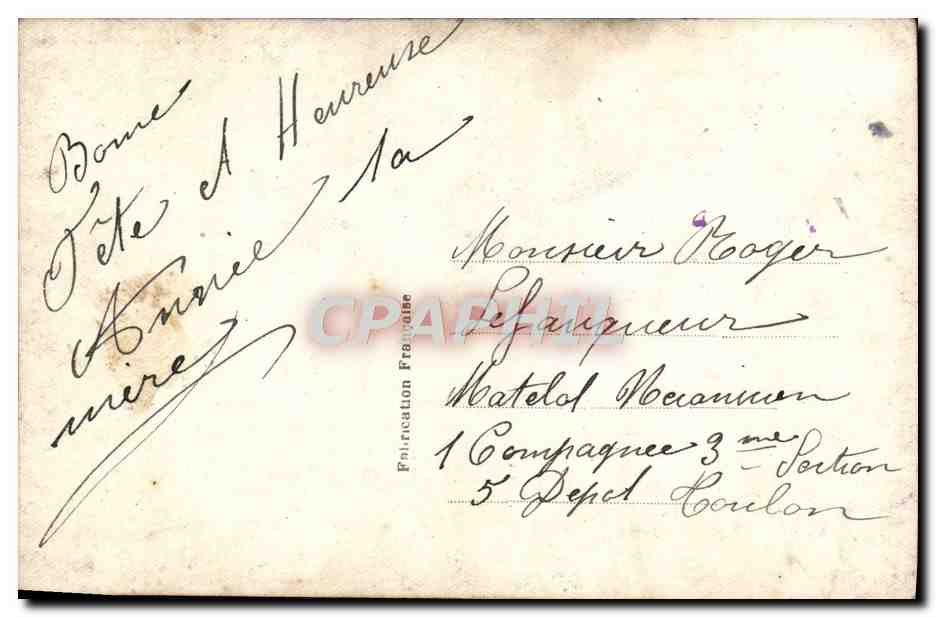 Bonne
Fête et Heureuse
Année ta
mère
Fabrication Française
CPAPHIL
Monsieur Roger
Lefauqueur
Matelot Mecanicien
1 Compagnee 3me Section
5 Depot Toulon